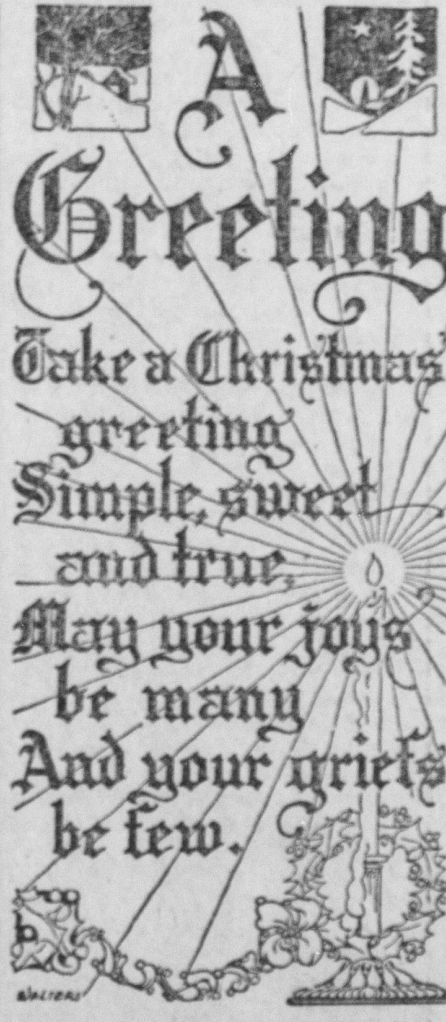 A
Greeting
Take a Christmas
greeting
Simple, sweet
and true,
May your joys
be many
And your griefs
be few.
WALTERS